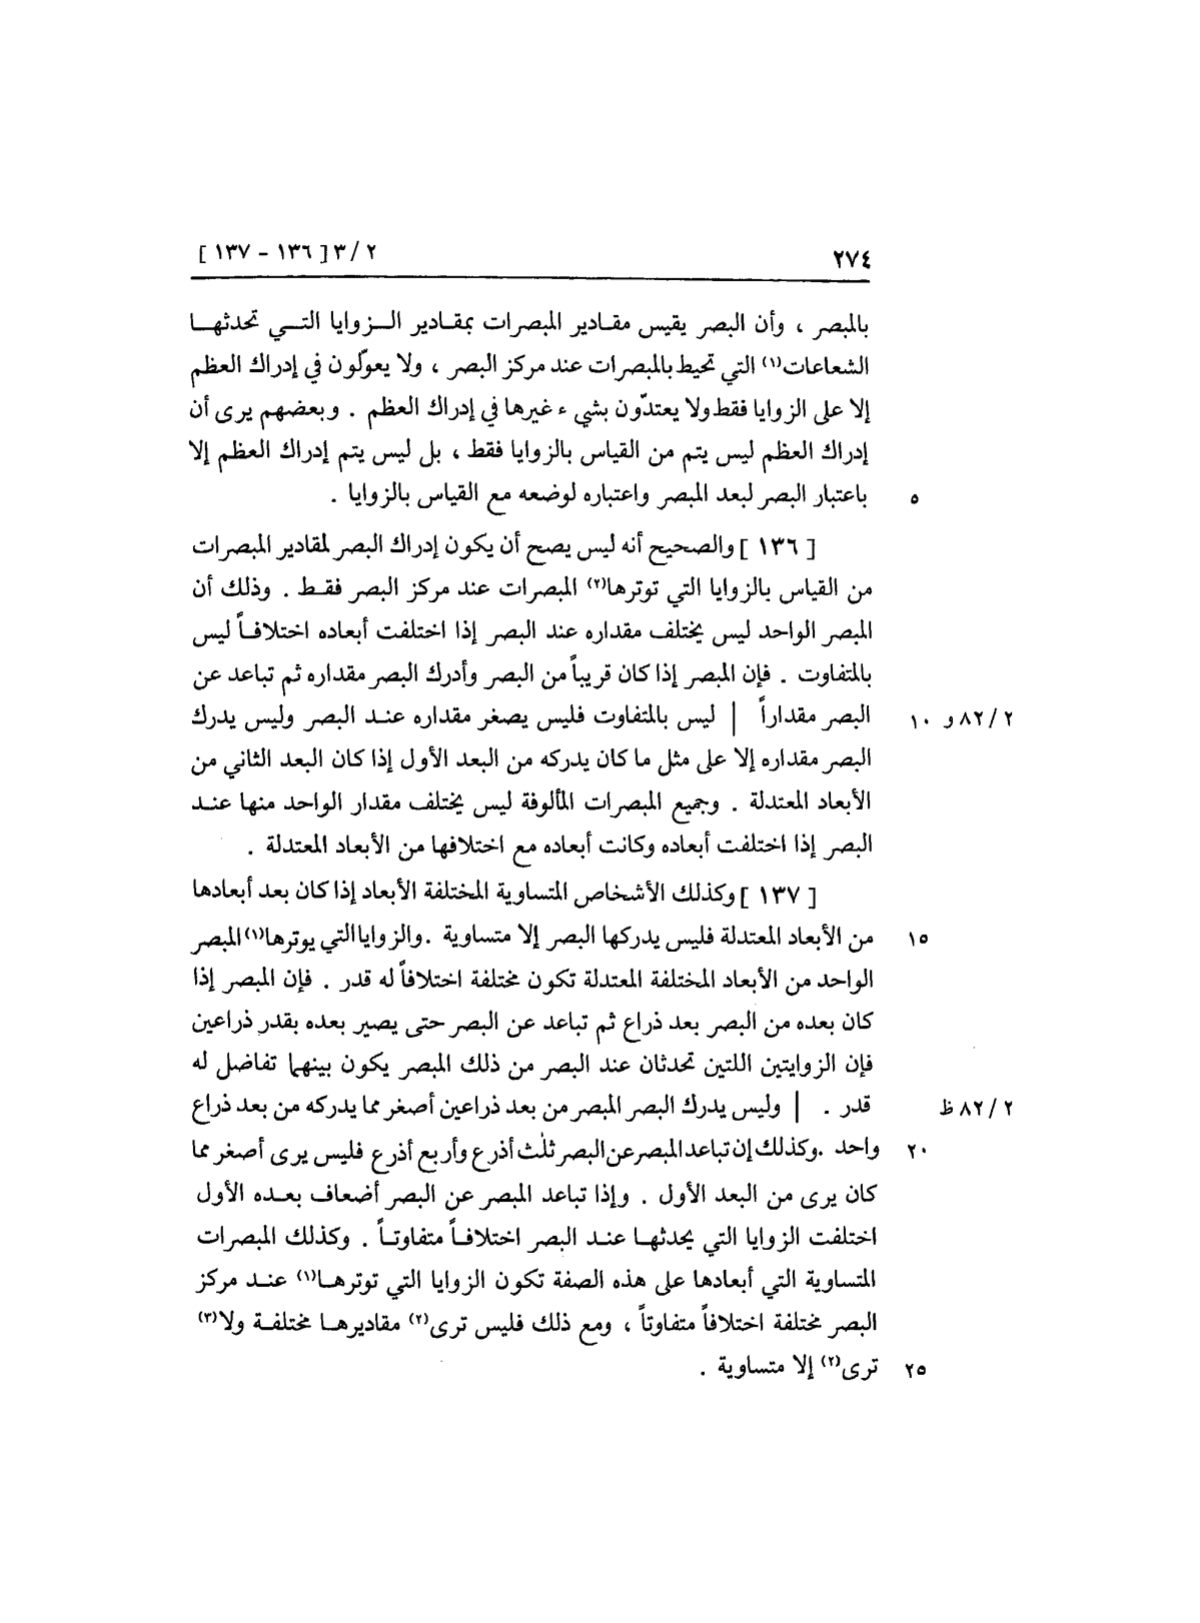 ٢٧٤ ٢ / ٣ [ ١٣٦ – ١٣٧ ]
بالمبصر ، وأن البصر يقيس مقادير المبصرات بمقادير الزوايا التي تحدثها
الشعاعات(١) التي تحيط بالمبصرات عند مركز البصر ، ولا يعوّلون في إدراك العظم
إلا على الزوايا فقط ولا يعتدّون بشيء غيرها في إدراك العظم . وبعضهم يرى أن
إدراك العظم ليس يتم من القياس بالزوايا فقط ، بل ليس يتم إدراك العظم إلا
٥ باعتبار البصر لبعد المبصر واعتباره لوضعه مع القياس بالزوايا .
[ ١٣٦ ] والصحيح أنه ليس يصح أن يكون إدراك البصر لمقادير المبصرات
من القياس بالزوايا التي توترها(٢) المبصرات عند مركز البصر فقط . وذلك أن
المبصر الواحد ليس يختلف مقداره عند البصر إذا اختلفت أبعاده اختلافاً ليس
بالمتفاوت . فإن المبصر إذا كان قريباً من البصر وأدرك البصر مقداره ثم تباعد عن
٢ / ٨٢ و ١٠ البصر مقداراً | ليس بالمتفاوت فليس يصغر مقداره عند البصر وليس يدرك
البصر مقداره إلا على مثل ما كان يدركه من البعد الأول إذا كان البعد الثاني من
الأبعاد المعتدلة . وجميع المبصرات المألوفة ليس يختلف مقدار الواحد منها عند
البصر إذا اختلفت أبعاده وكانت أبعاده مع اختلافها من الأبعاد المعتدلة .
[ ١٣٧ ] وكذلك الأشخاص المتساوية المختلفة الأبعاد إذا كان بعد أبعادها
١٥ من الأبعاد المعتدلة فليس يدركها البصر إلا متساوية . والزوايا التي يوترها(١) المبصر
الواحد من الأبعاد المختلفة المعتدلة تكون مختلفة اختلافاً له قدر . فإن المبصر إذا
كان بعده من البصر بعد ذراع ثم تباعد عن البصر حتى يصير بعده بقدر ذراعين
فإن الزوايتين اللتين تحدثان عند البصر من ذلك المبصر يكون بينهما تفاضل له
٢ / ٨٢ ظ قدر . | وليس يدرك البصر المبصر من بعد ذراعين أصغر مما يدركه من بعد ذراع
٢٠ واحد . وكذلك إن تباعد المبصر عن البصر ثلٰث أذرع وأربع أذرع فليس يرى أصغر مما
كان يرى من البعد الأول . وإذا تباعد المبصر عن البصر أضعاف بعده الأول
اختلفت الزوايا التي يحدثها عند البصر اختلافاً متفاوتاً . وكذلك المبصرات
المتساوية التي أبعادها على هذه الصفة تكون الزوايا التي توترها(١) عند مركز
البصر مختلفة اختلافاً متفاوتاً ، ومع ذلك فليس ترى(٢) مقاديرها مختلفة ولا(٣)
٢٥ ترى(٢) إلا متساوية .